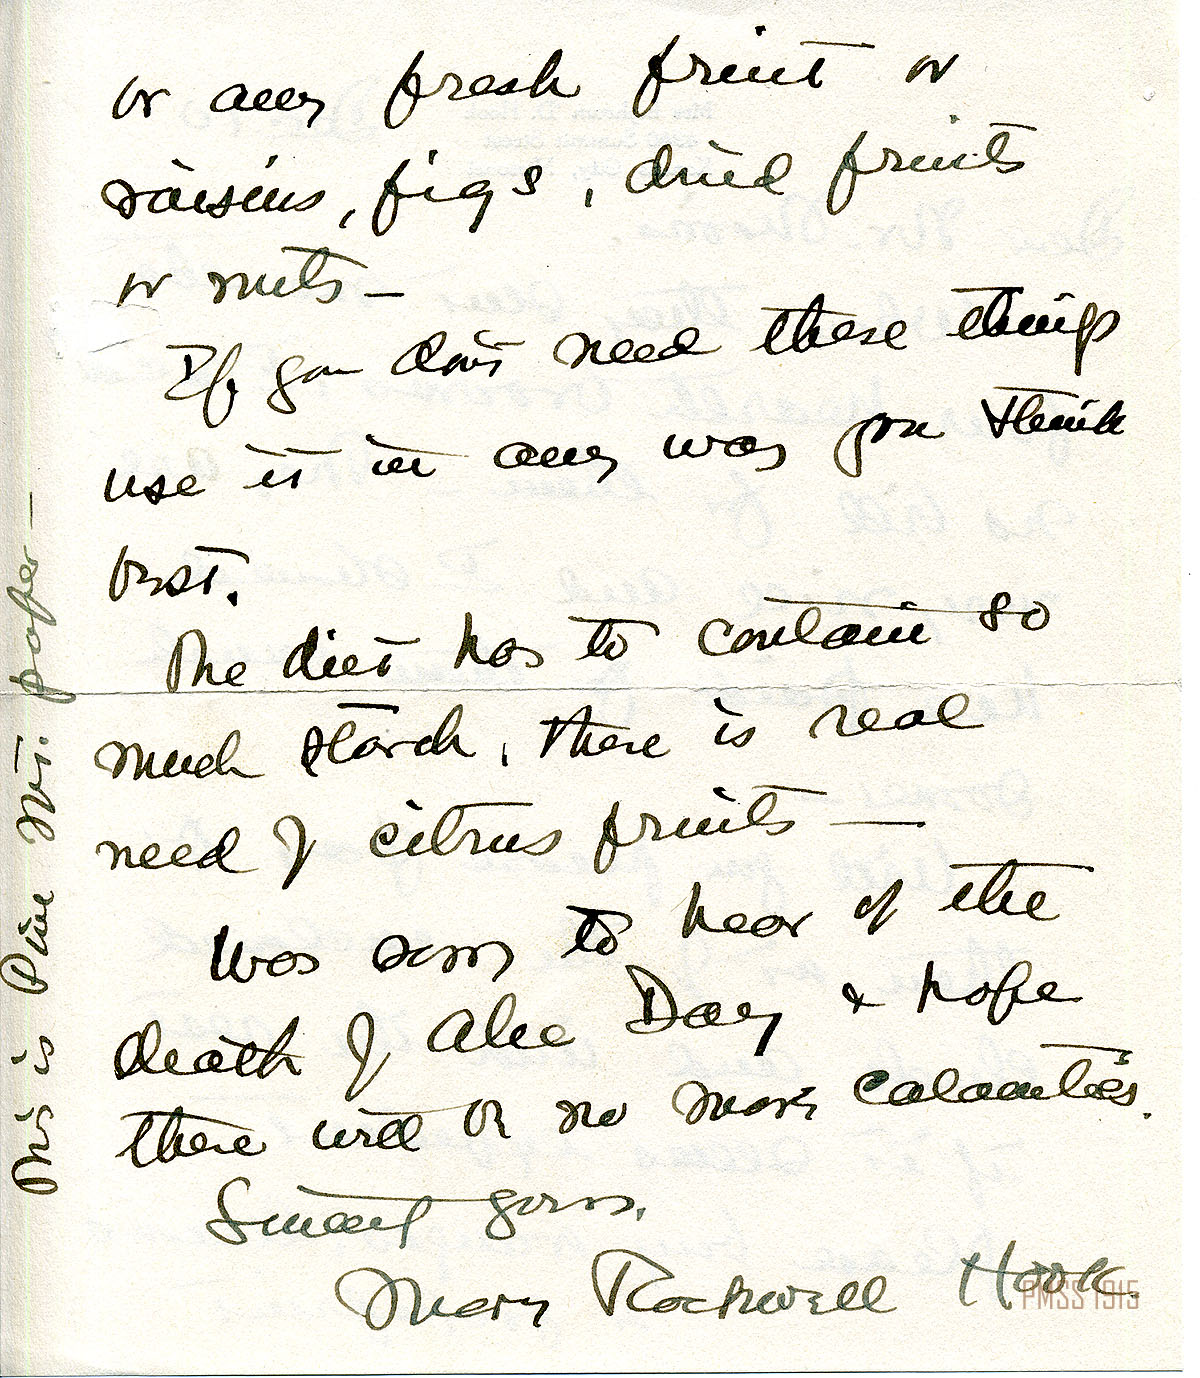 or any fresh fruit or
raisins, figs, dried fruits
or nuts —
If you don't need these things
use it in any way you think
best.
The diet has to contain so
much starch, there is real
need of citrus fruits —
Was sorry to hear of the
death of Alec Day & hope
there will be no more calamities.
Sincerely yours,
Mary Rockwell Hook.
PMSS 1915
This is Pine Mt. paper —